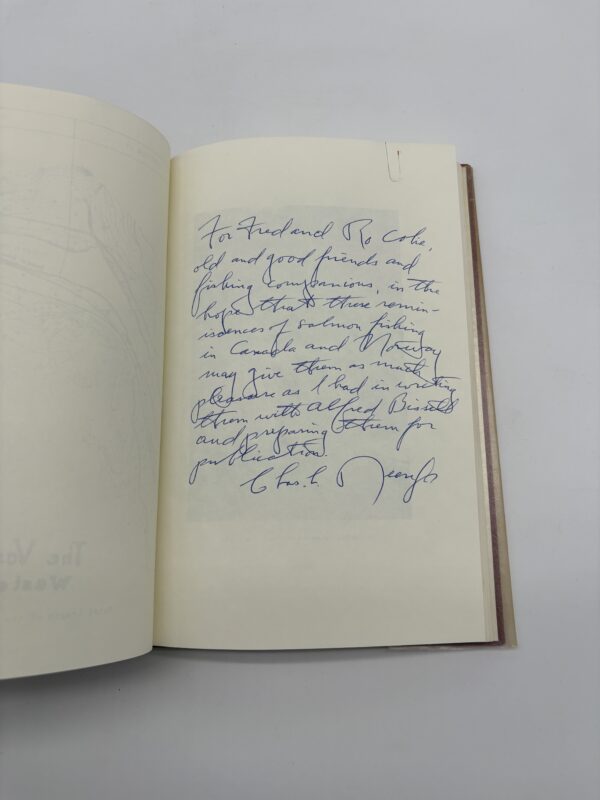 For Fred and Ro Coke,
old and good friends and
fishing companions, in the
hope that these remin-
iscences of salmon fishing
in Canada and Norway
may give them as much
pleasure as I had in writing
them with Alfred Bissell
and preparing them for
publication.
Chas.